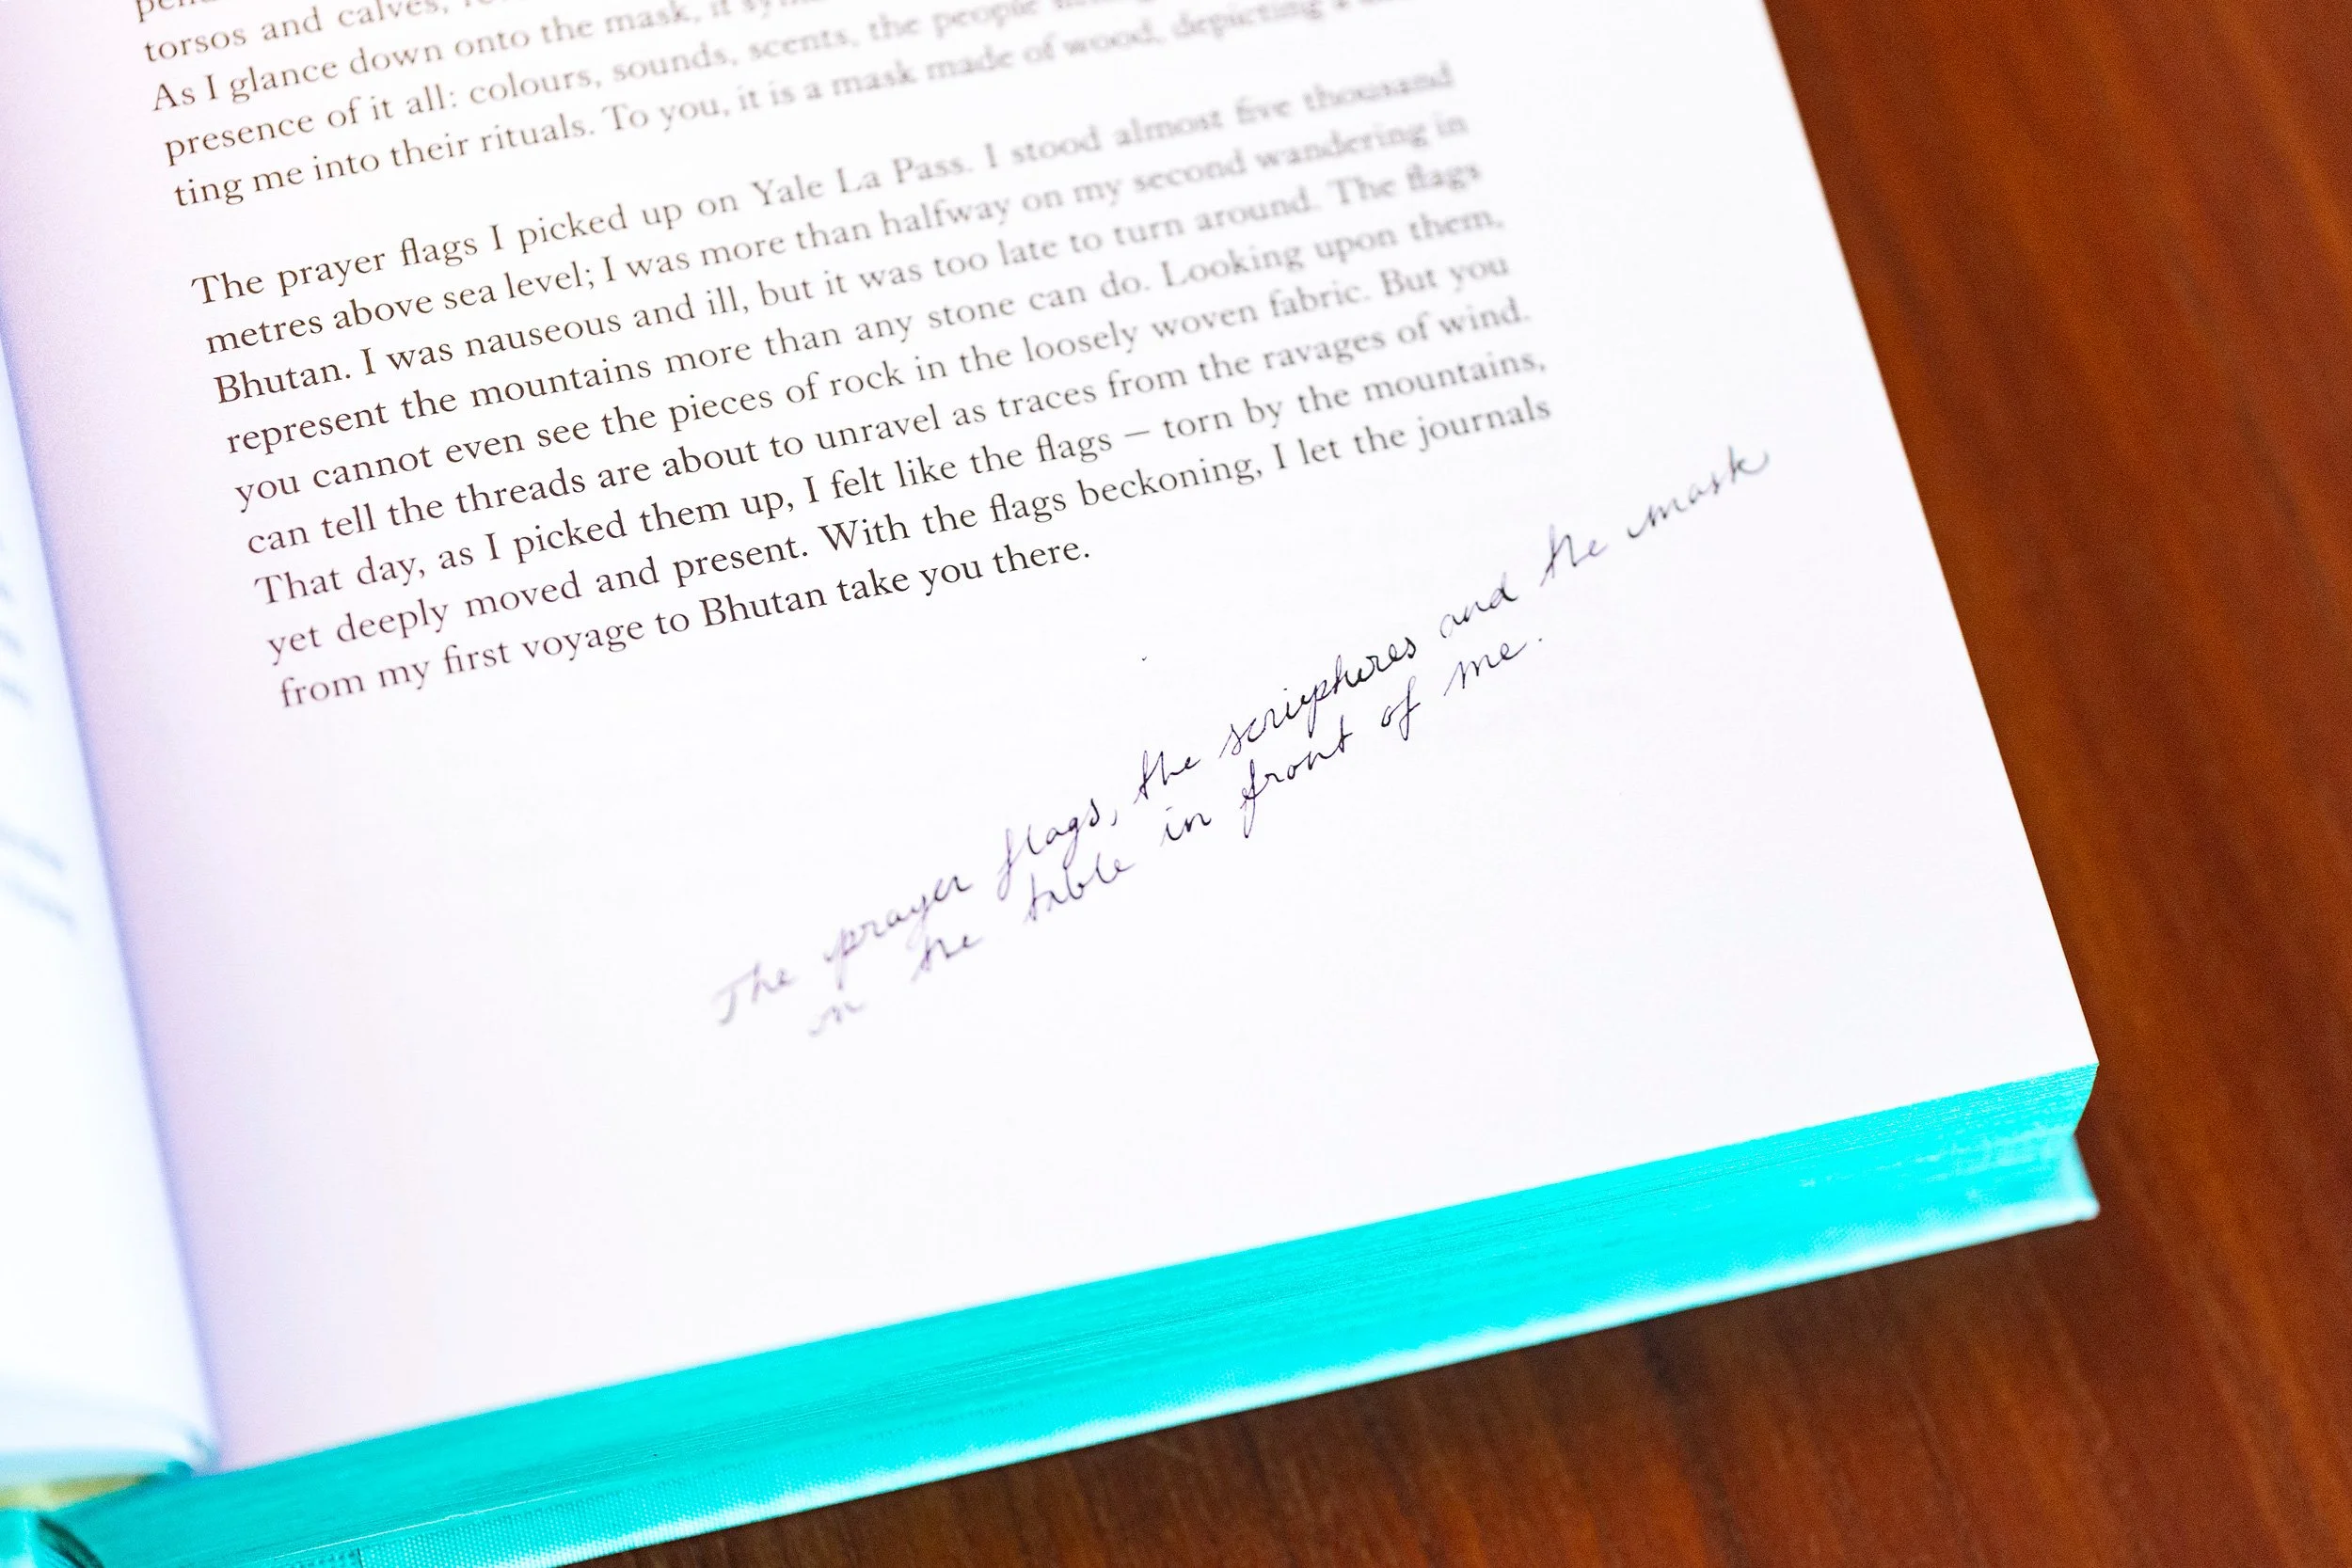 torsos and calves,
As I glance down onto the mask, it
presence of it all: colours, sounds, scents, the people
ting me into their rituals. To you, it is a mask made of wood, depicting a
The prayer flags I picked up on Yale La Pass. I stood almost five thousand
metres above sea level; I was more than halfway on my second wandering in
Bhutan. I was nauseous and ill, but it was too late to turn around. The flags
represent the mountains more than any stone can do. Looking upon them,
you cannot even see the pieces of rock in the loosely woven fabric. But you
can tell the threads are about to unravel as traces from the ravages of wind.
That day, as I picked them up, I felt like the flags – torn by the mountains,
yet deeply moved and present. With the flags beckoning, I let the journals
from my first voyage to Bhutan take you there.
The prayer flags, the and the mask
on the table in front of me.